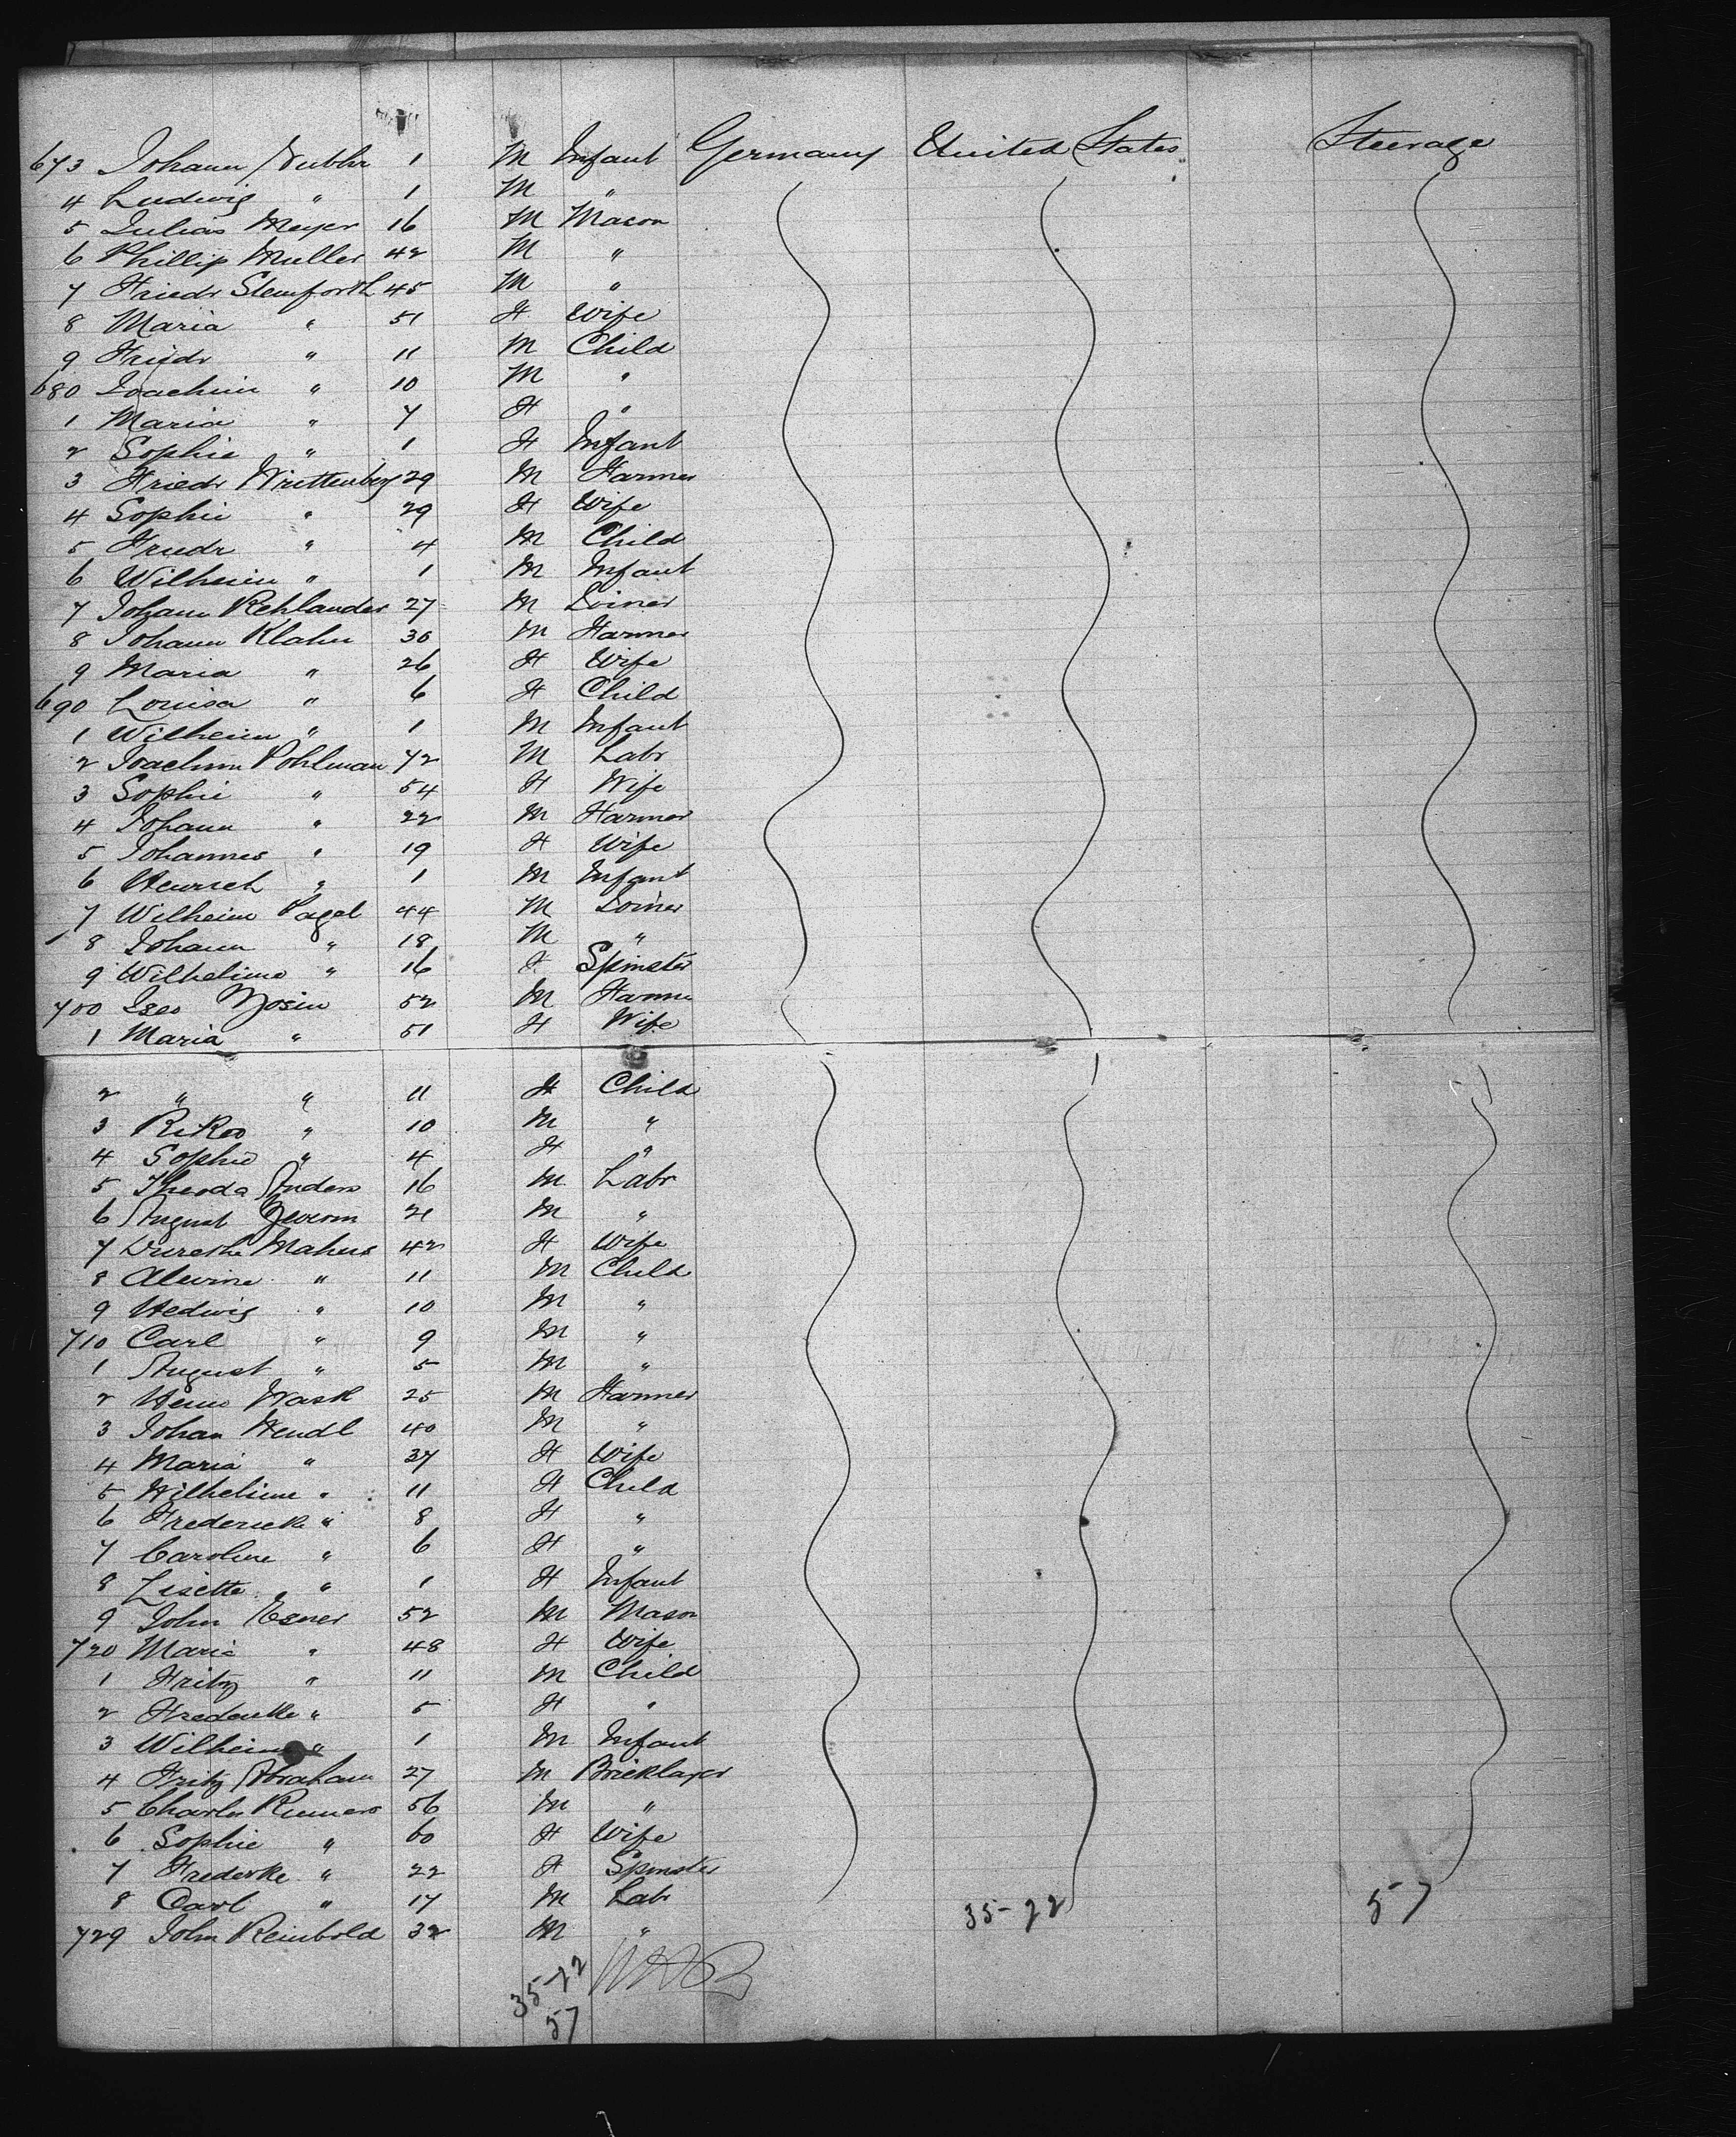 673 Johann 1 M Infant Germany United States Steerage
4 Ludwig " 1 M "
5 Julius Meyer 16 M Mason
6 Phillip Muller 42 M "
7 Friedr Stemforth 45 M "
8 Maria " 51 F Wife
9 Friedr " 11 M Child
680 Joachim " 10 M "
1 Maria " 7 F "
2 Sophie " 1 F Infant
3 Friedr Writtenberg 29 M Farmer
4 Sophie " 29 F Wife
5 Friedr " 4 M Child
6 Wilheim " 1 M Infant
7 Johann Rehlander 27 M Joiner
8 Johann Klahn 30 M Farmer
9 Maria " 26 F Wife
690 Louisa " 6 F Child
1 Wilheim " 1 M Infant
2 Joachim Pohlman 72 M Labr
3 Sophie " 54 F Wife
4 Johann " 22 M Farmer
5 Johannes " 19 F Wife
6 Heinrich " 1 M Infant
7 Wilheim Pagel 44 M Joiner
8 Johann " 18 M "
9 Wilhelime " 16 F Spinster
700 52 M Farmer
1 Maria " 51 F Wife
2 " " 11 F Child
3 " 10 M "
4 Sophie " 4 F "
5 Theoda Anders 16 M Labr
6 August 21 M "
7 42 F Wife
8 Alwine " 11 M Child
9 Hedwig " 10 M "
710 Carl " 9 M "
1 August " 5 M "
2 Wask 25 M Farmer
3 Johan Wendl 40 M "
4 Maria " 37 F Wife
5 Wilhelime " 11 F Child
6 Frederick " 8 F "
7 Caroline " 6 F "
8 Lisette " 1 F Infant
9 John Esner 52 M Mason
720 Maria " 48 F Wife
1 Fritz " 11 M Child
2 Frederike " 5 F "
3 Wilheim " 1 M Infant
4 Fritz Abraham 27 M Bricklayer
5 Charles 56 M "
6 Sophie " 60 F Wife
7 Frederke " 22 F Spinster
8 Carl " 17 M Labr
729 John Reinbold 32 M "
35-22 57
35-22
57